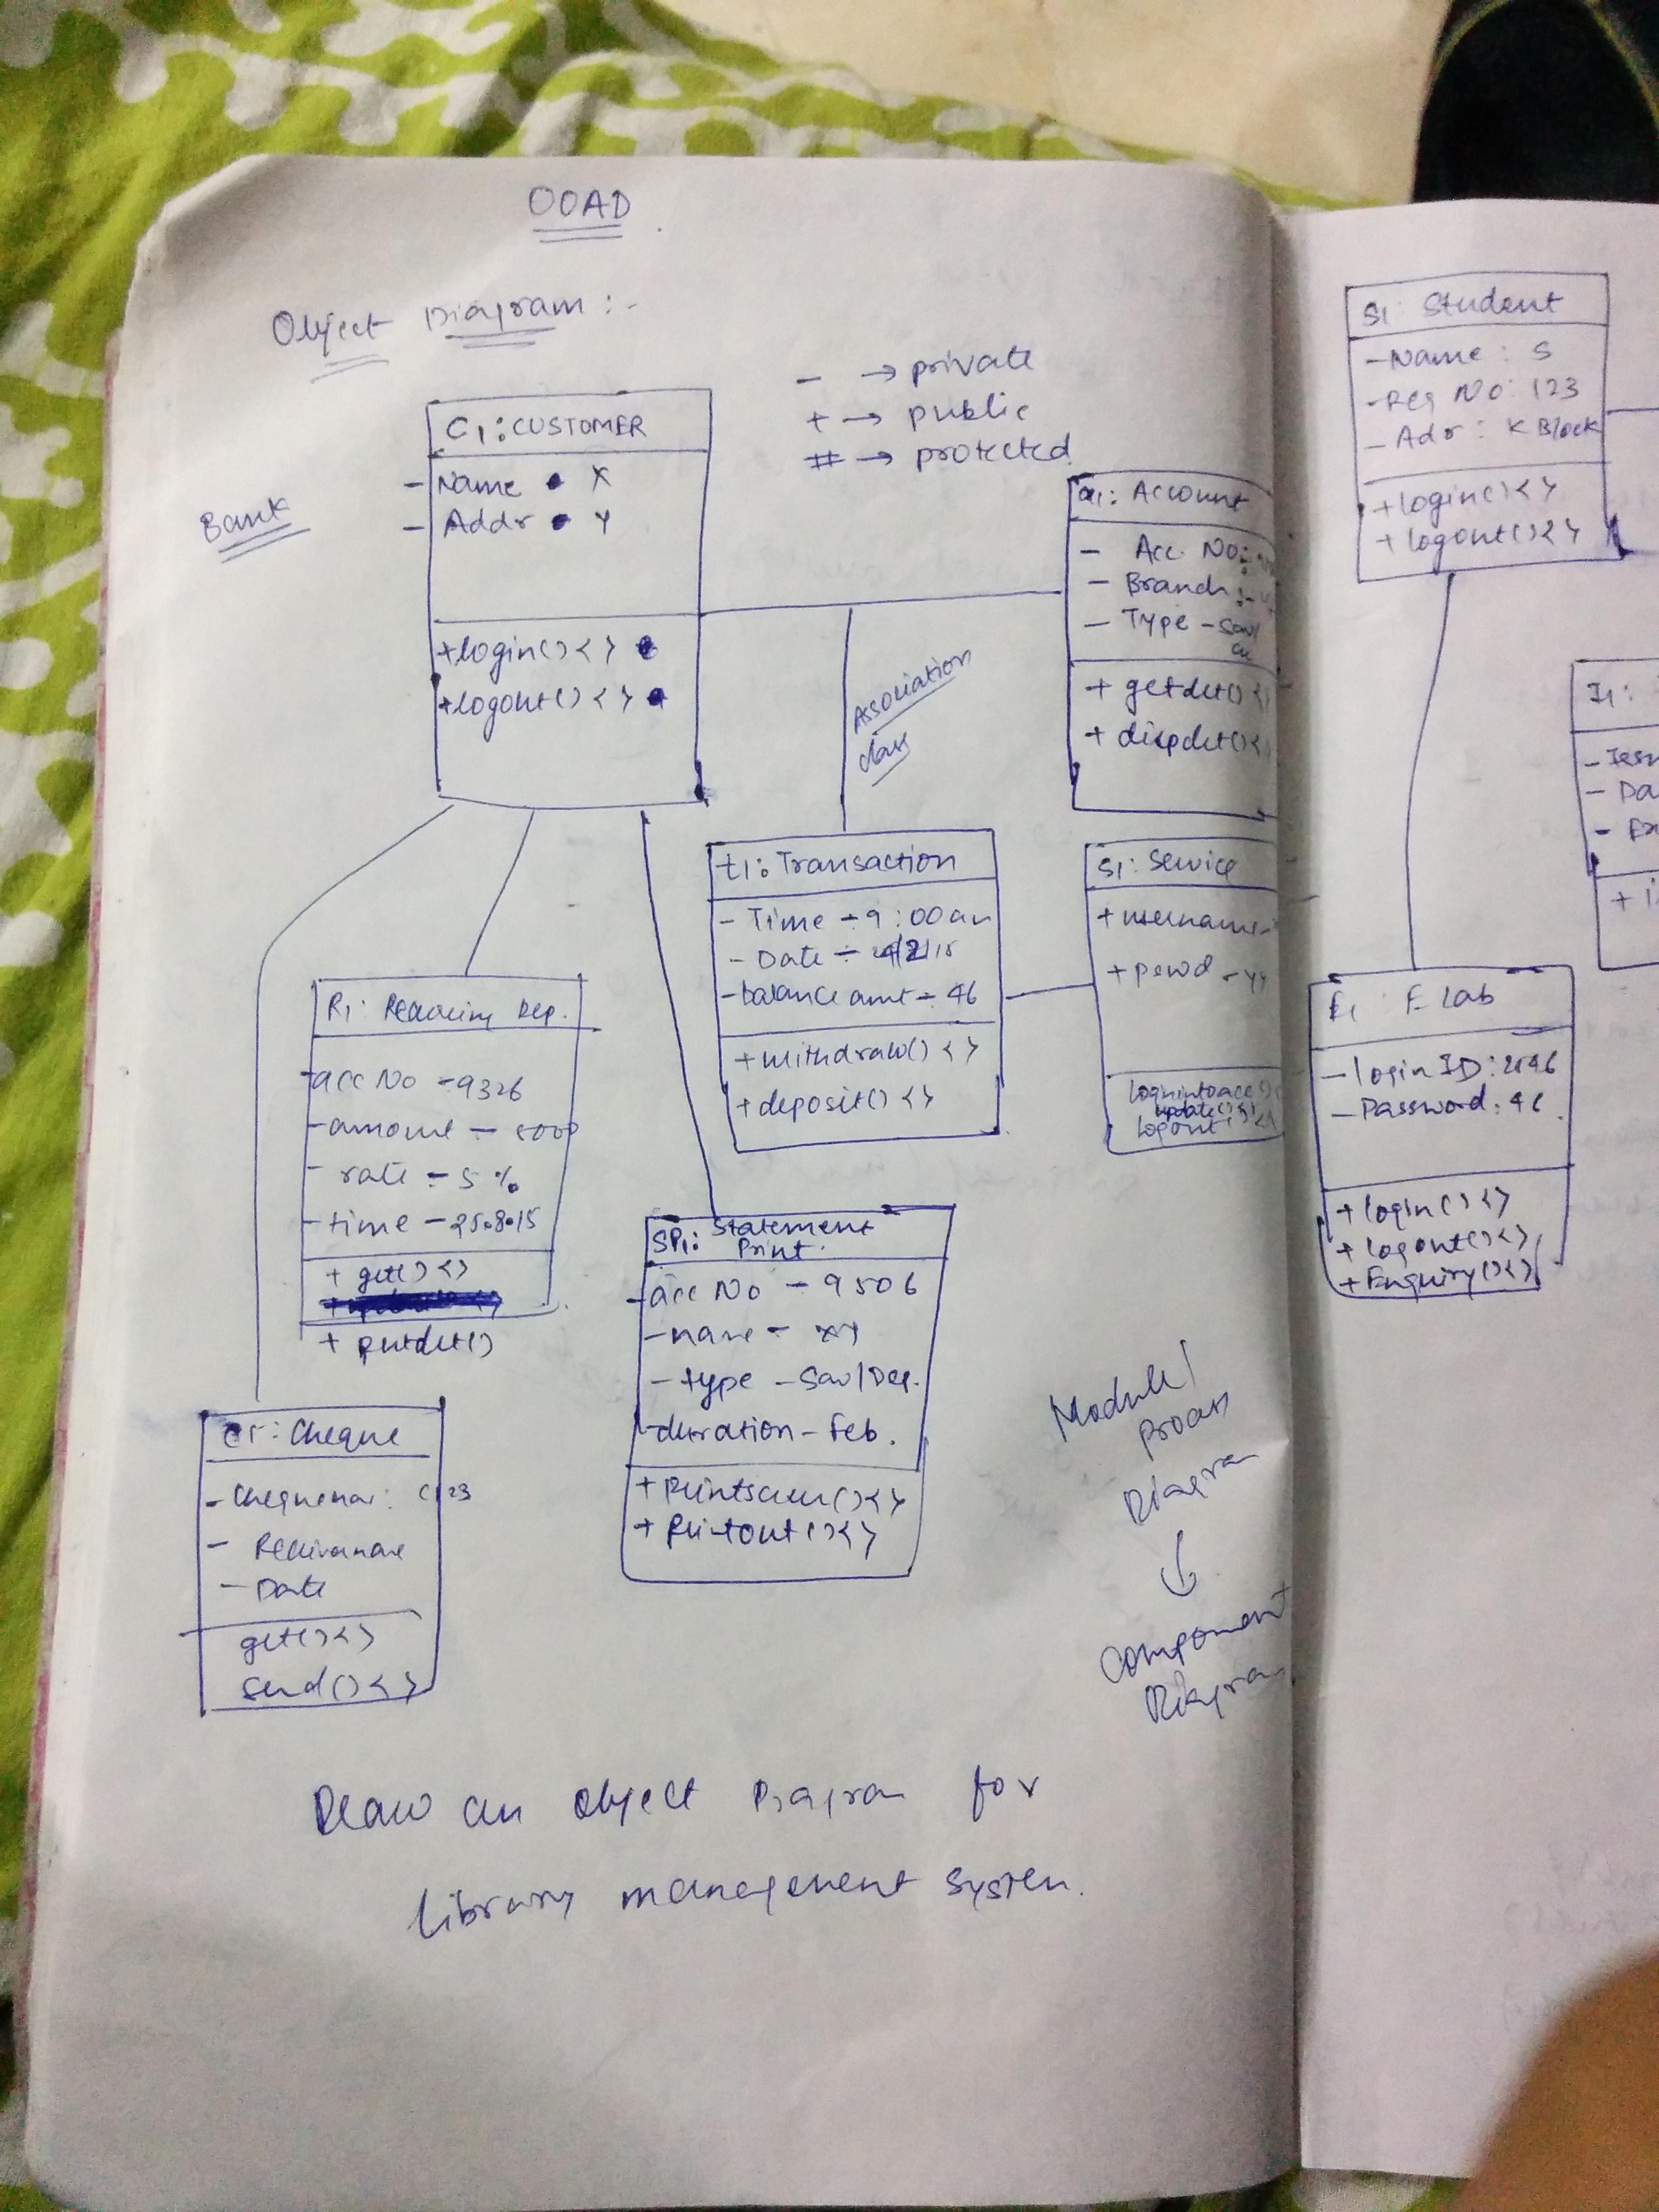 OOAD
Object Diagram :-
- → private
+ → public
# → protected
Bank
C1 : CUSTOMER
- Name • X
- Addr • Y
+login() { } •
+logout() { } •
a1: Account
- Acc. No:
- Branch :-
- Type - Sav/
+ getdet() {
+ dispdet() {
Association
class
t1: Transaction
- Time - 9:00 am
- Date -
- balance amt - 46
+ withdraw() { }
+ deposit() { }
S1: Service
+ username -
+ pswd - yy
logintoacc()
update() { }
logout() { }
R1: Recurring Dep.
- acc No - 9326
- amount - 5000
- rate - 5 %
- time - 25.8.15
+ get() { }
+ putdet()
SP1: Statement
Print.
- acc No - 9506
- name - xy
- type - Sav/Dep.
- duration - Feb.
+ printscreen() { }
+ Printout() { }
: Cheque
- Chequeno: C123
- Date
get() { }
send() { }
Module/
process
Diagram
↓
Component
Diagram
Draw an object Diagram for
library management system.
S1: Student
- Name : S
- Reg No: 123
- Adr : K Block
+ login() { }
+ logout() { }
I1:
- Da
- Ex
E1 : E lab
- login ID : 2646
- Password : 46
+ login() { }
+ logout() { }
+ Enquiry() { }